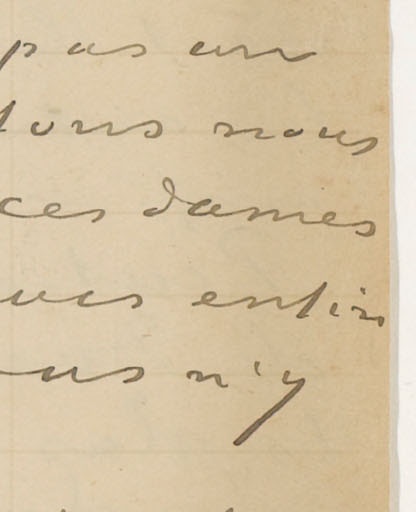 pas un
tous nous
ces dames
ues enfin
ous n'y